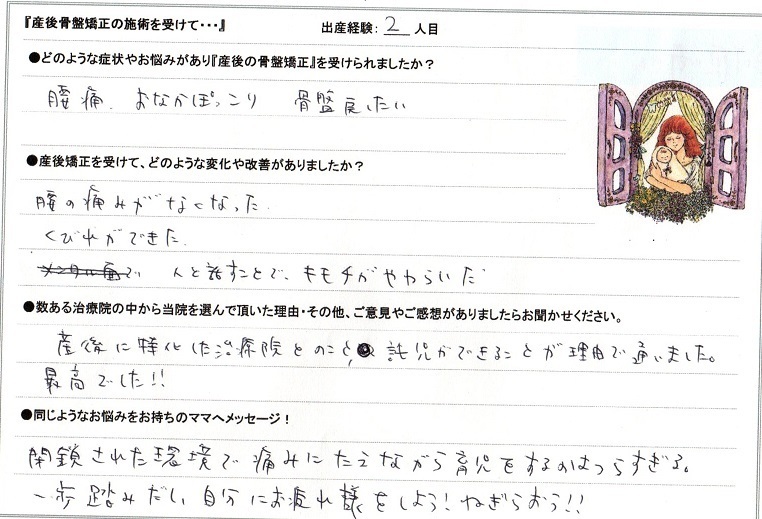 『産後骨盤矯正の施術を受けて・・・』 出産経験: 2 人目
●どのような症状やお悩みがあり『産後の骨盤矯正』を受けられましたか?
腰痛、おなかぽっこり 骨盤戻したい
●産後矯正を受けて、どのような変化や改善がありましたか?
腰の痛みがなくなった
くびれができた
人と話すことで、キモチがやわらいだ
●数ある治療院の中から当院を選んで頂いた理由・その他、ご意見やご感想がありましたらお聞かせください。
産後に特化した治療院とのこと、託児ができることが理由で通いました。
最高でした!!
●同じようなお悩みをお持ちのママへメッセージ!
閉鎖された環境で痛みにたえながら育児をするのはつらすぎる。
一歩踏みだし、自分にお疲れ様をしよう!ねぎらおう!!